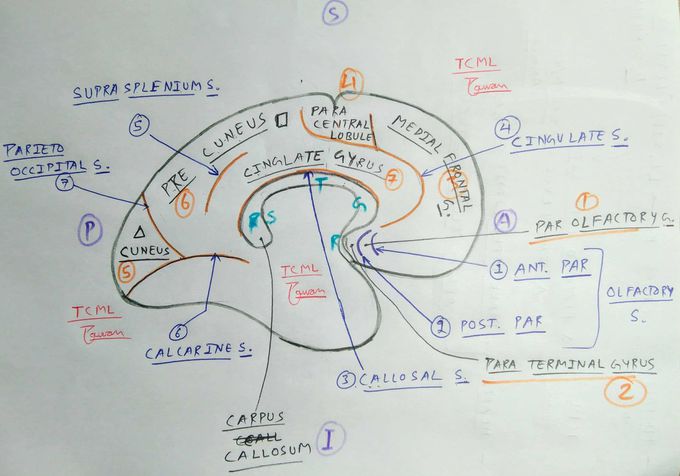 S
TCML
Pawan
SUPRA SPLENIUM S.
5
4
PARA
CENTRAL
LOBULE
MEDIAL FRONTAL
G.
4
CINGULATE S.
PARIETO
OCCIPITAL S.
7
PRE CUNEUS
6
CINGLATE GYRUS
7
T
G
R
S
R
P
A
1
PAR OLFACTORY G.
CUNEUS
5
TCML
Pawan
1 ANT. PAR
OLFACTORY
S.
2 POST. PAR
TCML
Pawan
6
CALCARINE S.
3 CALLOSAL S.
PARA TERMINAL GYRUS
2
CARPUS
CALLOSUM
I